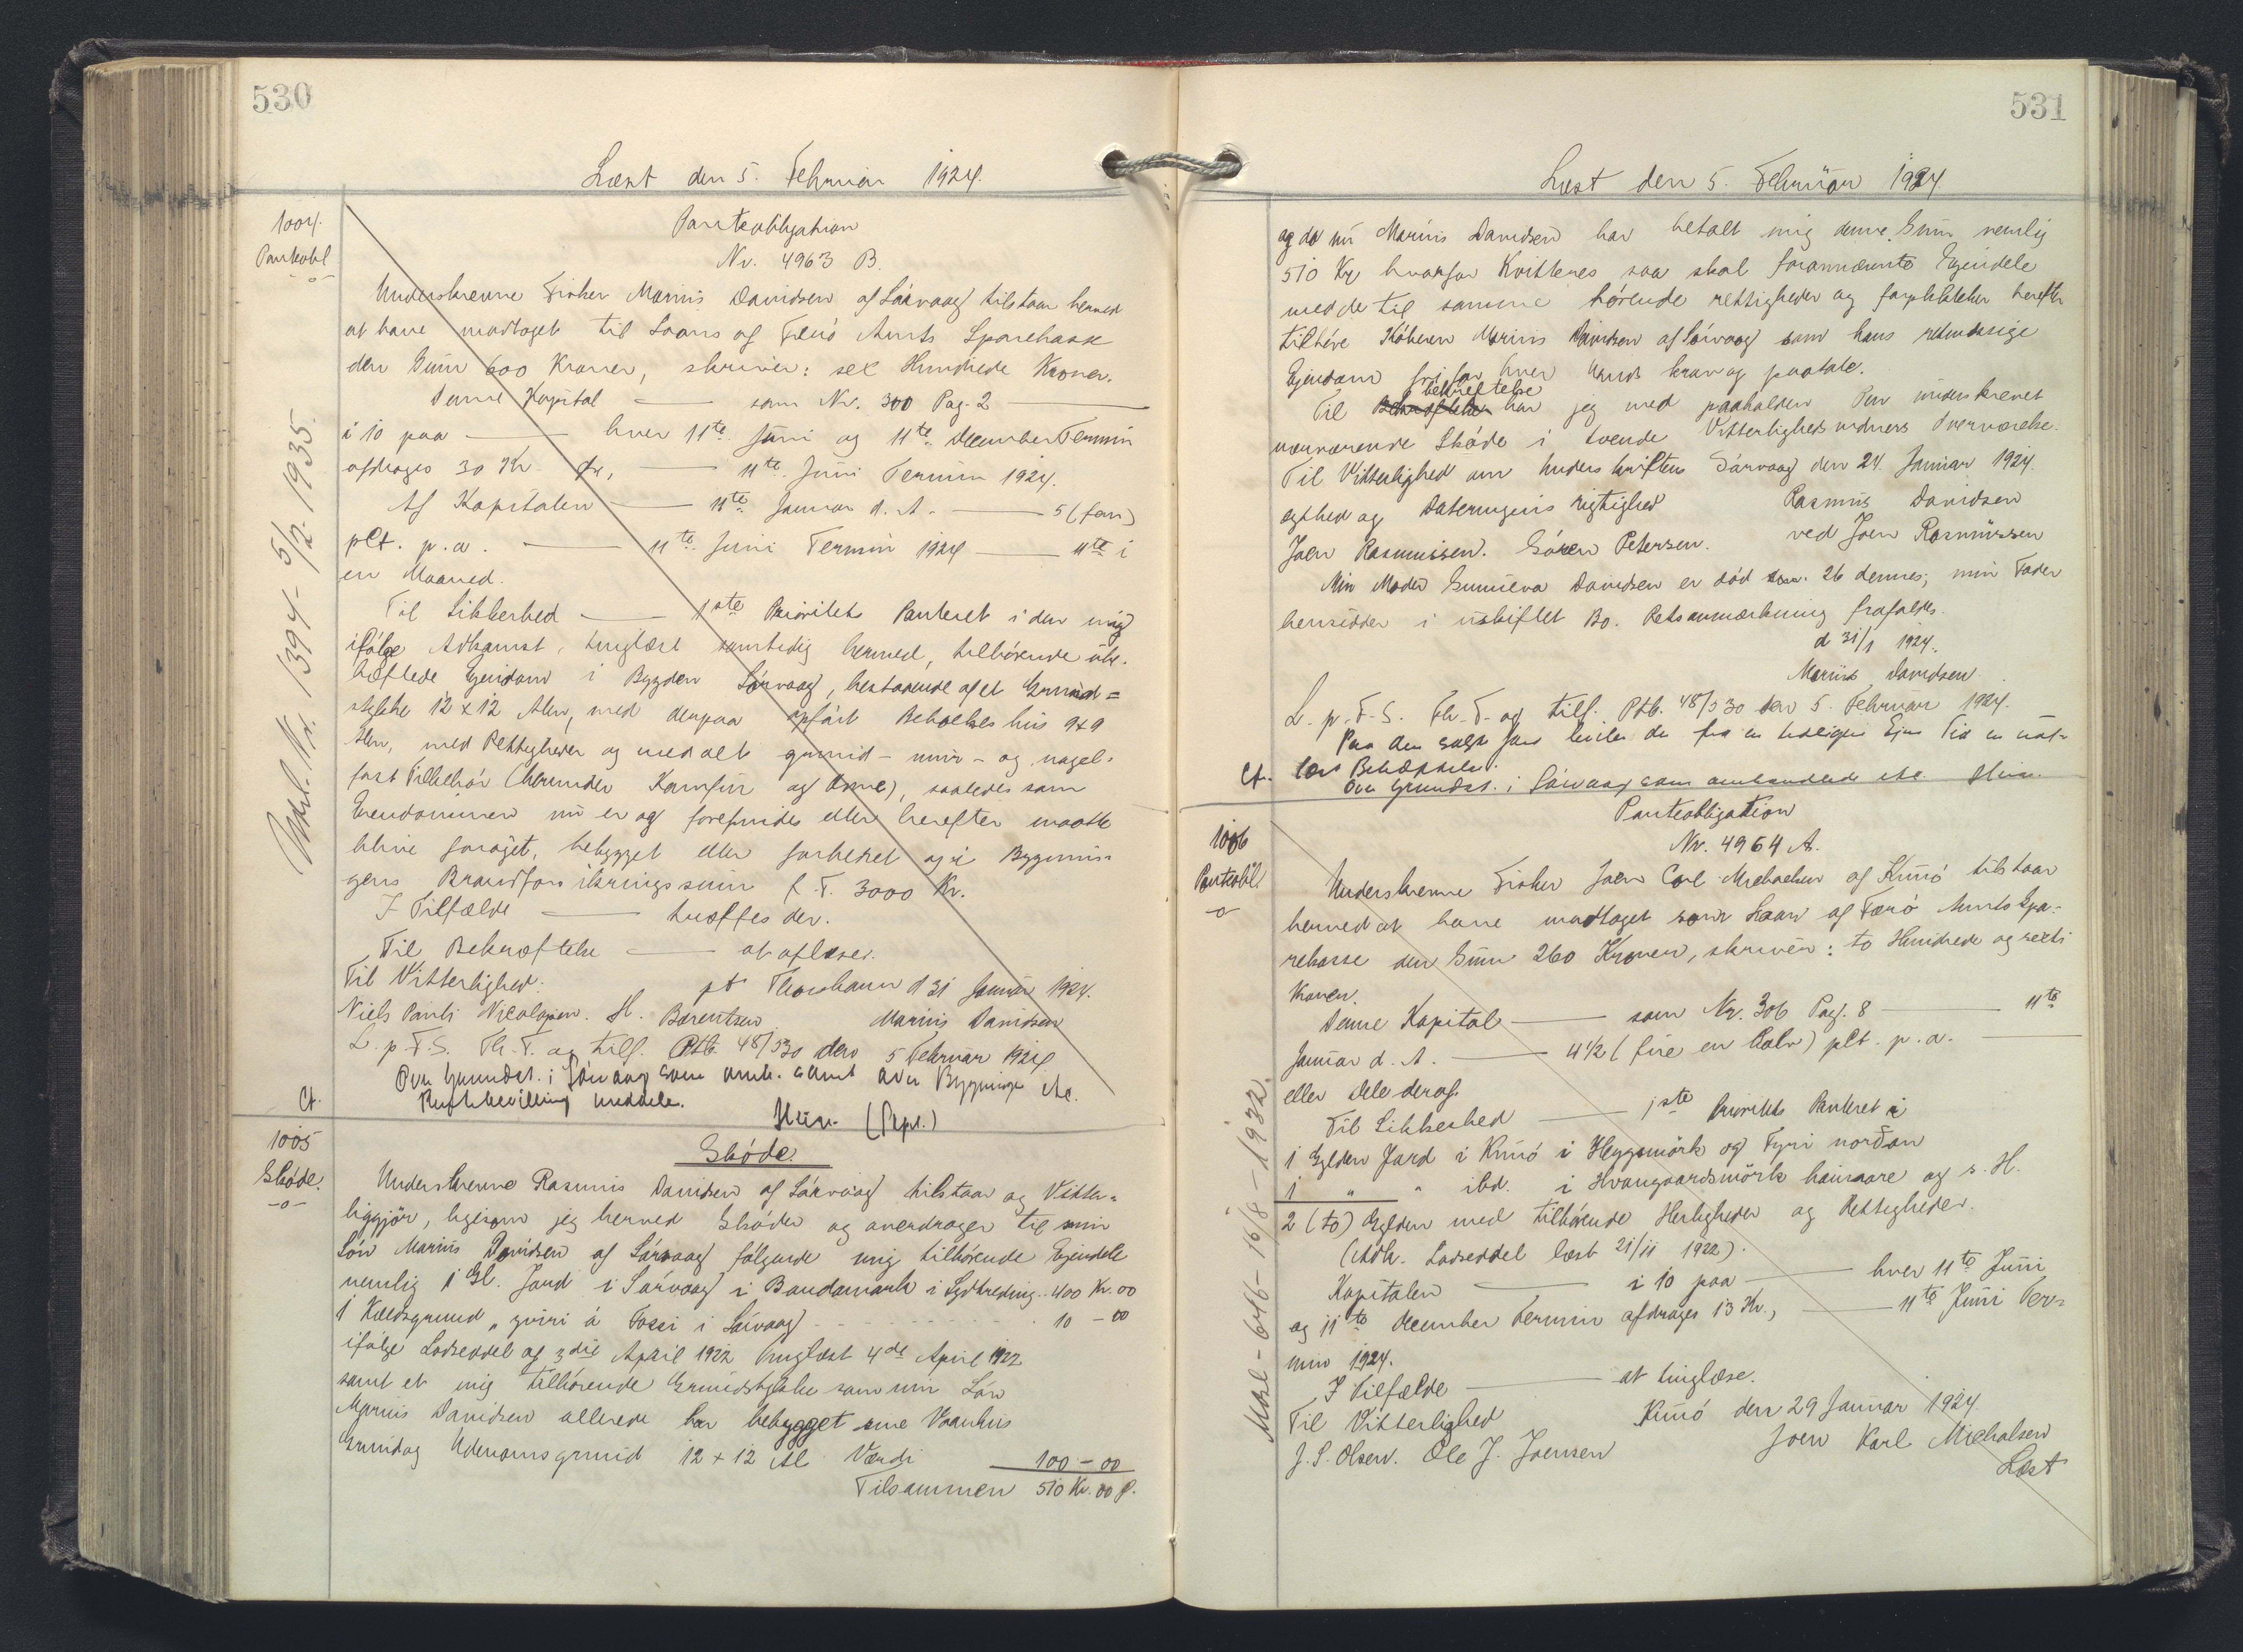 530
Læst den 5. Februar 1924.
1004.
Panteobl
Panteobligation
Nr. 4963 B.
Underskrevne Fisker Marius Davidsen af Sörvaag tilstaar herved
at have modtaget til Laans af Færö Amts Sparekasse
den Sum 600 Kroner, skriver: sex Hundrede Kroner.
Denne Kapital — som Nr. 300 Pag. 2 —
i 10 paa — hver 11te Juni og 11te December Termin
afdrages 30 Kr. — 11te Juni Termin 1924.
Af Kapitalen — 11te Januar d. A. — 5 (fem)
pCt. p.a. — 11te Juni Termin 1924 — 11te i
en Maaned.
Til Sikkerhed — 1ste Prioritets Panteret i den mig
ifölge Adkomst, tinglæst samtidig hermed, tilhörende ube-
hæftede Ejendom i Bygden Sörvaag, bestaaende af et Grund=
stykke 12 x 12 Alen, med derpaa opfört Beboelses hus 9x9
Alen, med Rettigheder og med alt grund- mur- og nagel-
fast Tilbehör (herunder Komfur og Ovne), saaledes som
Ejendommen nu er og forefindes eller herefter maatte
blive foröget, bebygget eller forbedret og i Bygnin-
gens Brandforsikringssum f. T. 3000 Kr.
I Tilfælde — træffes der.
Til Bekræftelse — at aflæses.
Til Vitterlighed: pt Thorshavn d 31 Januar 1924.
Niels Pauli Nicolajsen. H. Barentsen Marius Davidsen
L. p. F. S. Th. T. og tilf. Ptb. 48/530 den 5 Februar 1924
Over Grundst. i Sörvaag som omh. samt over Bygninger etc.
Ct. meddeles.
Udsl. Nr. 1394 - 5/2 - 1935.
1005
Sköde.
Sköde.
Underskrevne Rasmus Davidsen af Sörvaag tilstaar og Vitter=
liggjör, ligesom jeg herved Sköder og overdrager til min
Sön Marius Davidsen af Sörvaag fölgende mig tilhörende Ejendele
nemlig 1 Gl. Jord i Sörvaag i Bondamark i Lydtreding.. 400 Kr. 00
1 Kældsgrund „ yviri á Fossi i Sörvaag - - - - 10 - 00
ifölge Lodseddel af 3die April 1922 tinglæst 4de April 1922
samt et mig tilhörende Grundstykke som min Sön
Marius Davidsen allerede har bebygget sine Vaanhus
Grund og Udenomsgrund 12 + 12 Al. Værdi 100 - 00
Tilsammen 510 Kr. 00 ø.
531
Læst den 5. Februar 1924
og da nu Marius Davidsen har betalt mig denne Sum nemlig
510 Kr hvorfor Kvitteres saa skal forannævnte Ejendele
med de til samme hörende rettigheder og forpligtelser herefter
tilhöre Köberen Marius Davidsen af Sörvaag som hans retmæssige
Ejendom fri for hver Mands krav og paatale.
Til bekræftelse har jeg med paaholden Pen underskrevet
nærværende Sköde i tvende Vitterlighedsvidners Overværelse.
Til Vitterlighed om Underskriftens Sörvaag den 24. Januar 1924.
ægthed og Dateringens rigtighed Rasmus Davidsen
Joen Rasmussen. Sören Petersen. ved Joen Rasmussen
Min Moder Sunneva Davidsen er död den 26 dennes; min Fader
hensidder i uskiftet Bo. Retsanmærkning frafaldes.
d 31/1 1924.
Marius Davidsen
L. p. F. S. Th. T. og tilf. Ptb. 48/530 den 5 Februar 1924.
Paa den solgte Jord hviler der fra en tidligere Ejers Tid en uaf-
Ct. læst Behæftelse.
Over Grundst. i Sörvaag som ommeldt etc.
1006
Panteobl.
Panteobligation
Nr. 4964 A.
Underskrevne Fisker Joen Carl Michaelsen af Kunö tilstaar
herved at have modtaget som Laan af Færö Amts Spa-
rekasse den Sum 260 Kroner, skriver: to Hundrede og sexti
Kroner.
Denne Kapital — som Nr. 306 Pag. 8 — 11te
Januar d. A. — 4½ (fire en halv) pCt. p. a. —
eller Dele deraf.
Til Sikkerhed — 1ste Prioritets Panteret i
1 Gylden Jord i Kunö i Heygsmörk og Fyri norðan
1 " " ibd. i Hvangaardsmörk hansaare og s. H.
2 (to) Gylden med tilhörende Herligheder og Rettigheder.
(Adk. Lodseddel læst 21/11 1922).
Kapitalen — i 10 paa — hver 11te Juni
og 11te December Termin afdrages 13 Kr., — 11te Juni Ter-
min 1924.
I Tilfælde — at tinglæse.
Til Vitterlighed Kunö den 29 Januar 1924.
J. S. Olsen. Ole J. Joensen Joen Karl Michalsen
Læst
Udsl - 646 - 16/8 - 1932.